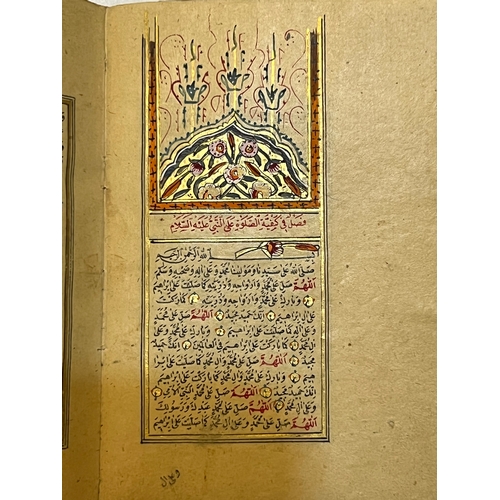 فصل في كيفية الصلوة على النبي عليه السلام
بسم الله الرحمن الرحيم
صلى الله على سيدنا ومولينا محمد وعلى اله وصحبه وسلم
اللهم صل على محمد وازواجه وذريته كما صليت على ابراهيم
وبارك على محمد وازواجه وذريته كما باركت
على ال ابراهيم انك حميد مجيد اللهم صل على محمد
وعلى اله كما صليت على ابراهيم وبارك على محمد وعلى
ال محمد كما باركت على ابراهيم في العالمين انك حميد
مجيد اللهم صل على محمد وال محمد كما صليت على ابرا
هيم وبارك على محمد وال محمد كما باركت على ابراهيم
انك حميد مجيد اللهم صل على محمد النبي الامي
وعلى ال محمد اللهم صل على محمد عبدك ورسولك
اللهم صل على محمد وعلى ال محمد كما صليت على ابراهيم
وعلى ال